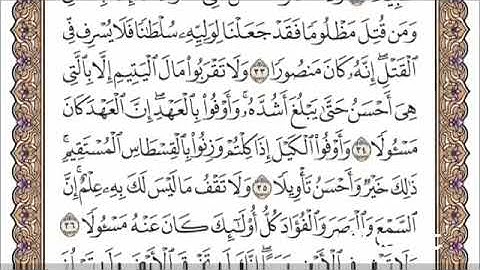 وَمَن قُتِلَ مَظْلُومًا فَقَدْ جَعَلْنَا لِوَلِيِّهِۦ سُلْطَٰنًا فَلَا يُسْرِف فِّى
ٱلْقَتْلِ إِنَّهُۥ كَانَ مَنصُورًا ٣٣ وَلَا تَقْرَبُوا۟ مَالَ ٱلْيَتِيمِ إِلَّا بِٱلَّتِى
هِىَ أَحْسَنُ حَتَّىٰ يَبْلُغَ أَشُدَّهُۥ وَأَوْفُوا۟ بِٱلْعَهْدِ إِنَّ ٱلْعَهْدَ كَانَ
مَسْـُٔولًا ٣٤ وَأَوْفُوا۟ ٱلْكَيْلَ إِذَا كِلْتُمْ وَزِنُوا۟ بِٱلْقِسْطَاسِ ٱلْمُسْتَقِيمِ
ذَٰلِكَ خَيْرٌ وَأَحْسَنُ تَأْوِيلًا ٣٥ وَلَا تَقْفُ مَا لَيْسَ لَكَ بِهِۦ عِلْمٌ إِنَّ
ٱلسَّمْعَ وَٱلْبَصَرَ وَٱلْفُؤَادَ كُلُّ أُو۟لَٰٓئِكَ كَانَ عَنْهُ مَسْـُٔولًا ٣٦